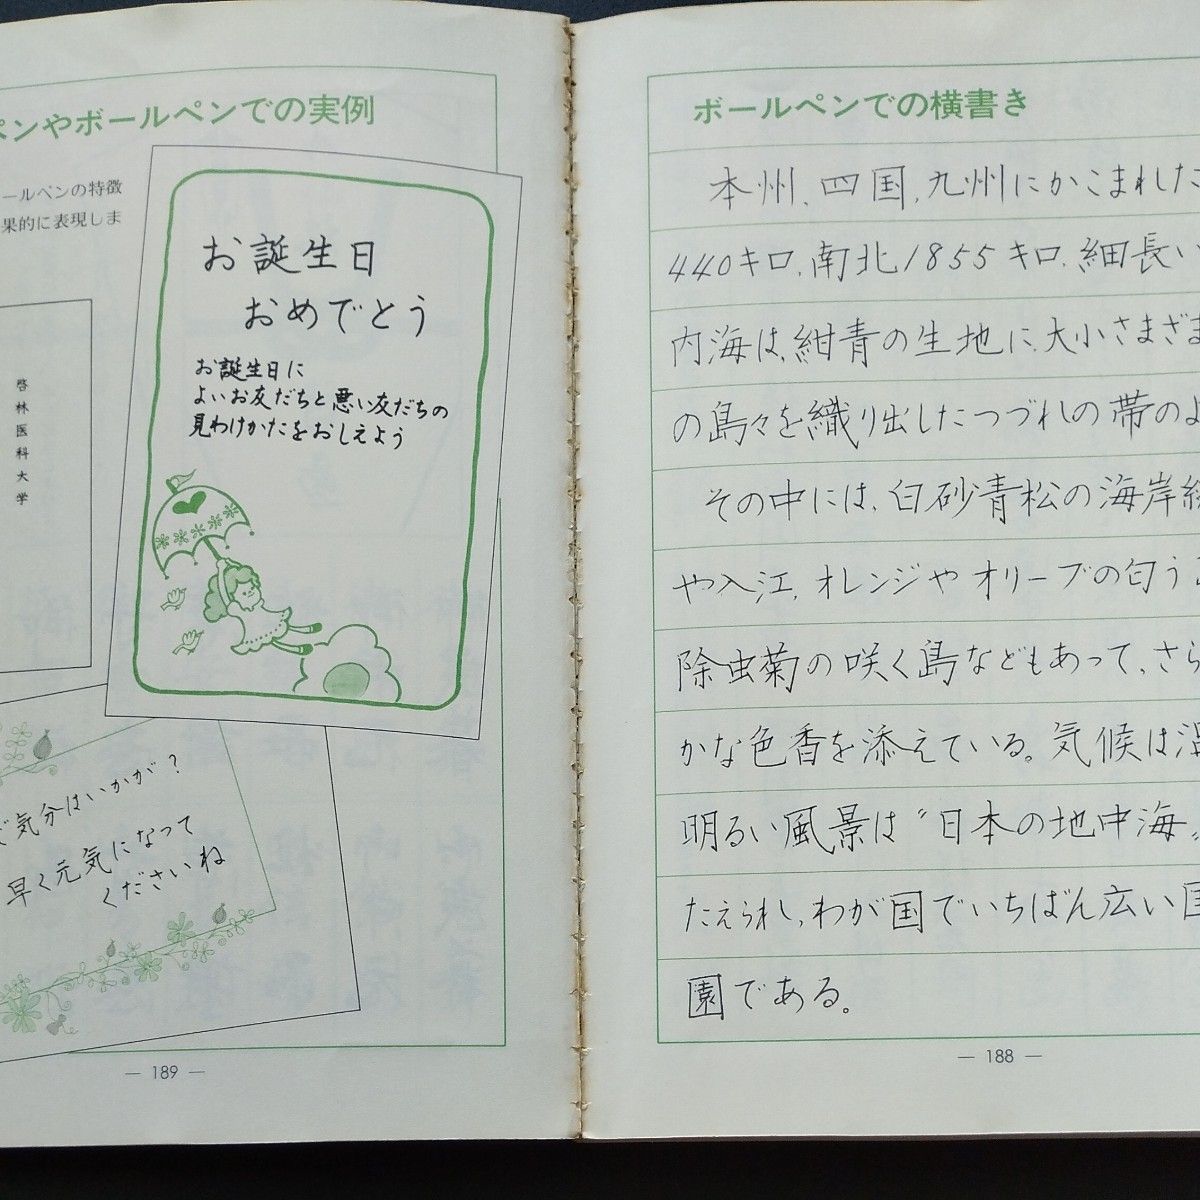 ボールペンでの横書き
本州、四国、九州にかこまれた
440キロ、南北1855キロ、細長い
内海は、紺青の生地に、大小さまざま
の島々を織り出したつづれの帯のよ
その中には、白砂青松の海岸線
や入江、オレンジやオリーブの匂う
除虫菊の咲く島などもあって、さら
かな色香を添えている。気候は温
明るい風景は〝日本の地中海〟
たえられ、わが国でいちばん広い国
園である。
— 188 —
ペンやボールペンでの実例
ールペンの特徴
果的に表現しま
お誕生日
おめでとう
お誕生日に
よいお友だちと悪い友だちの
見わけかたをおしえよう
啓林医科大学
気分はいかが?
早く元気になって
くださいね
— 189 —